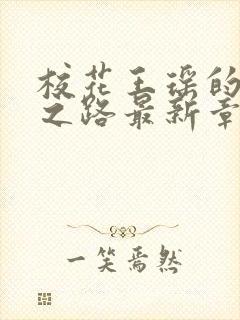 校花王瑶的
之路最新章
一笑焉然